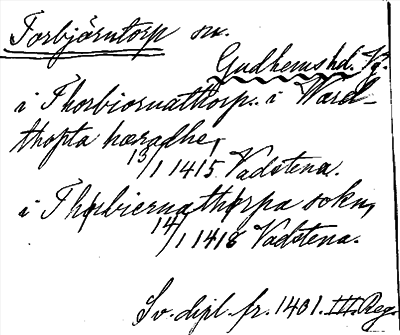 Torbjörntorp sn.
Gudhems hd. Vg.
i Thorbiornathorp. i Wart-
thopta hæradhe,
13/1 1415 Vadstena.
i Thorbiernathorpa sokn,
14/1 1418 Vadstena.
Sv. dipl. fr. 1401. III. Reg.